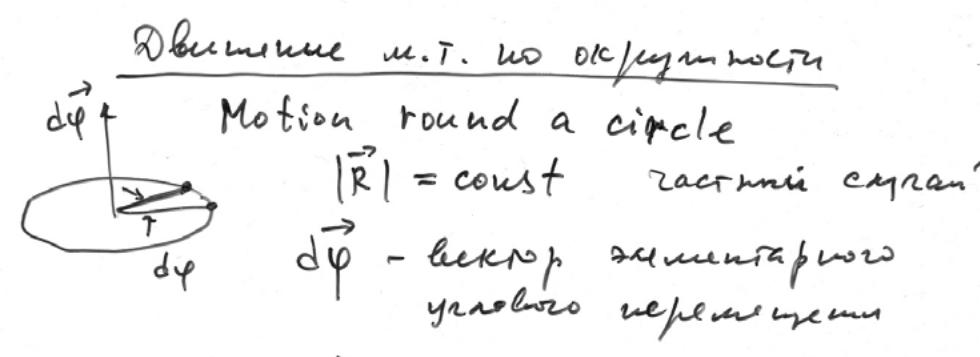 Движение м.т. по окружности
Motion round a circle
dφ⃗
|R⃗| = const частный случай
dφ⃗ - вектор элементарного
dφ
углового перемещения